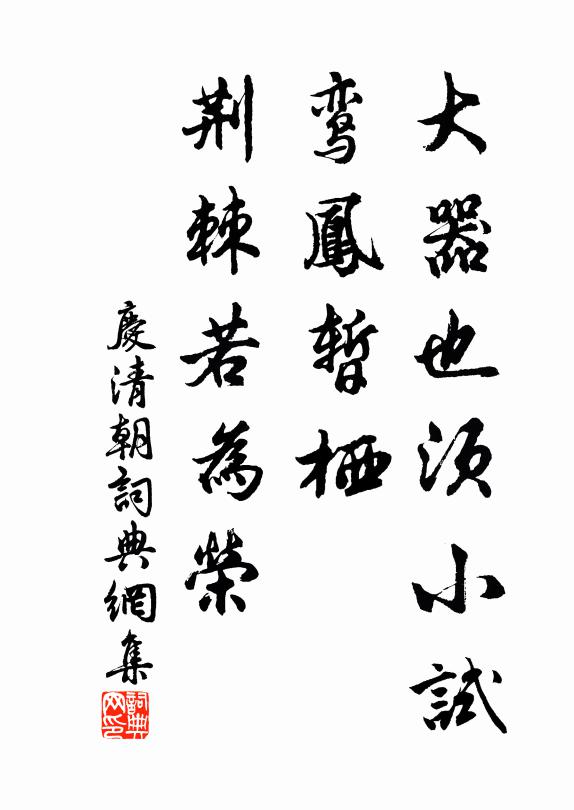 大器也須小試
鸞鳳暫栖
荆棘若為榮
慶清朝詞典網集
詞典网印